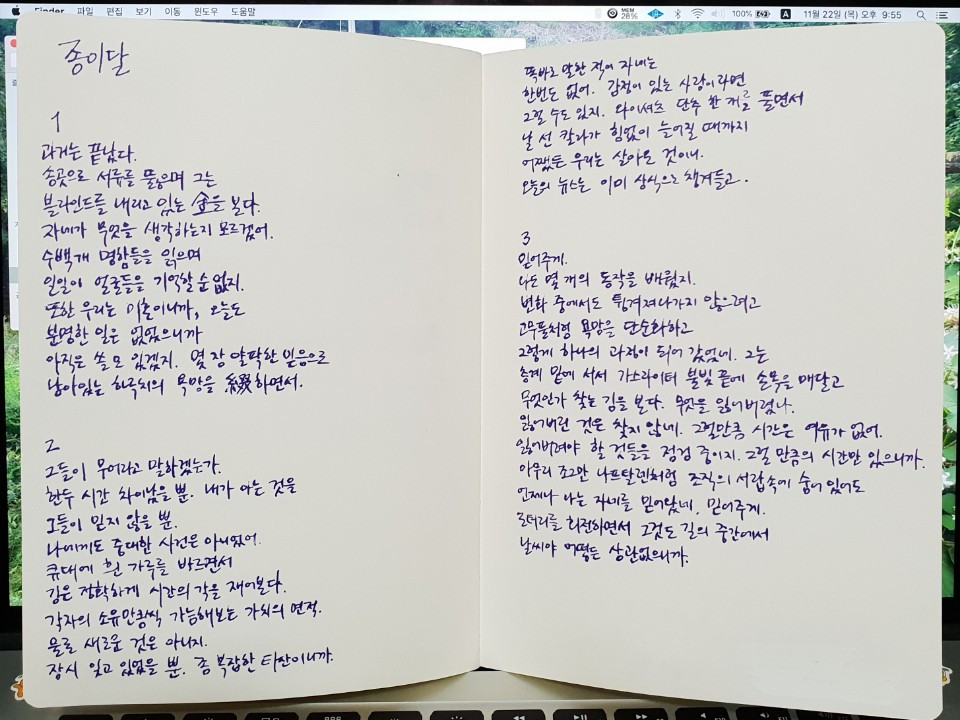 Finder 파일 편집 보기 이동 윈도우 도움말
MEM 28% 100% A 11월 22일 (목) 오후 9:55
종이달
1
과거는 끝났다.
송곳으로 서류를 뚫으며 그는
블라인드를 내리고 있는 金을 본다.
자네가 무엇을 생각하는지 모르겠어.
수백 개 명함들을 읽으며
일일이 얼굴들을 기억할 순 없지.
또한 우리는 미혼이니까, 오늘도
분명한 일은 없었으니까
아직은 쓸모 있겠지. 몇 장 얄팍한 믿음으로
남아있는 하루치의 욕망을 綴하면서.
2
그들이 무어라고 말하겠는가.
한두 시간 차이났을 뿐. 내가 아는 것을
그들이 믿지 않을 뿐.
나에게도 중대한 사건은 아니었어.
큐대에 흰 가루를 바르면서
김은 정확하게 시간의 각을 재어본다.
각자의 소유만큼씩 가늠해보는 가치의 면적.
물론 새로운 것은 아니지.
잠시 잊고 있었을 뿐. 좀 복잡한 타산이니까.
똑바로 말한 적이 자네는
한번도 없어. 감정이 있는 사람이라면
그럴 수도 있지. 와이셔츠 단추 한 개를 풀면서
날 선 칼라가 힘없이 늘어질 때까지
어쨌든 우리는 살아온 것이니.
오늘의 뉴스는 이미 상식으로 챙겨들고.
3
믿어주게.
나도 몇 개의 동작을 배웠지.
변화 중에서도 튕겨져나가지 않으려고
고무풀처럼 욕망을 단순화하고
그렇게 하나의 과정이 되어 갔었네. 그는
층계 밑에 서서 가스라이터 불빛 끝에 손목을 매달고
무엇인가 찾는 김을 본다. 무엇을 잃어버렸나.
잃어버린 것은 찾지 않네. 그럴만큼 시간은 여유가 없어.
잃어버려야 할 것들을 점검 중이지. 그럴 만큼의 시간만 있으니까.
아무리 조그만 나프탈렌처럼 조직의 서랍속에 숨어 있어도
언제나 나는 자네를 믿어왔네. 믿어주게.
로터리를 회전하면서 그것도 길의 중간에서
날씨야 어떻든 상관없으니까.